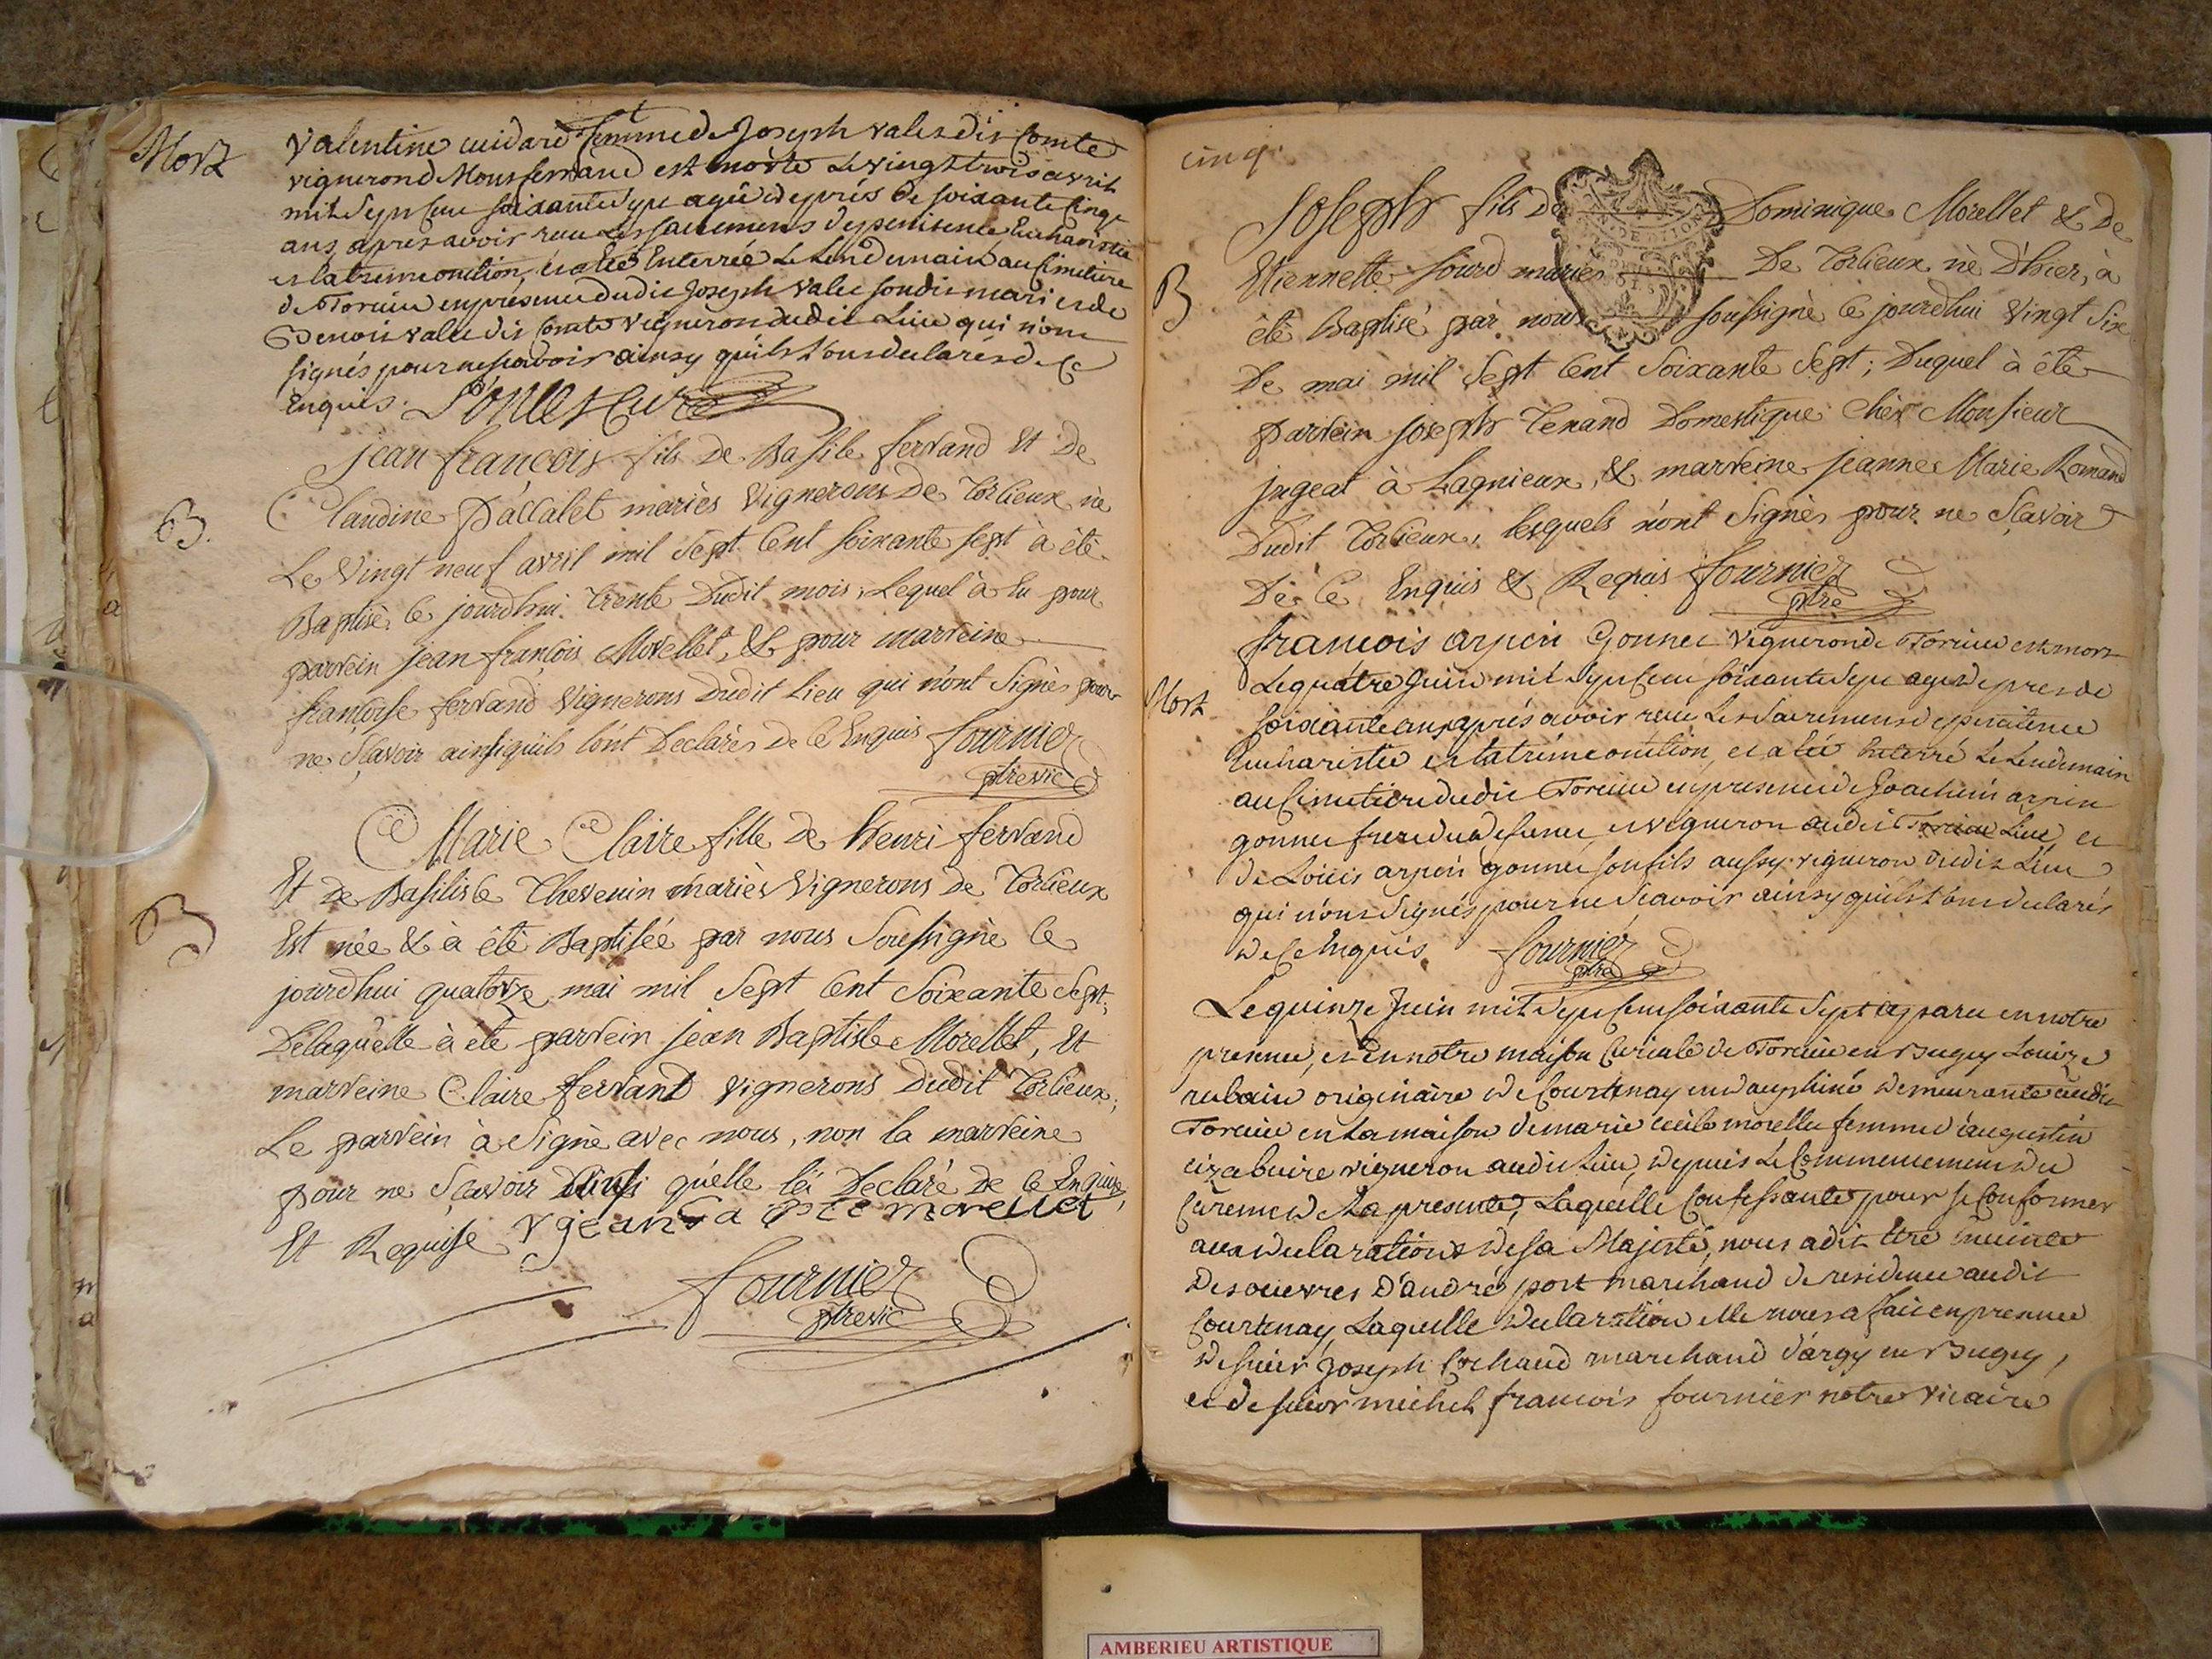 Mort
Valentine cuidard femme de Joseph valet dit Comte
vigneron de Monferrand est morte le vingt trois avril
mil Sept Cent soixante Sept agée de près de soixante Cinq
ans, après avoir recu Les sacremens de penitence Eucharistie
et latreme onction, et a été Enterrée Le Lendemain au Cimetiere
de Torcieu en présence dudit Joseph valet sondit mari et de
Benoit valet dit Comte vigneron dudit Lieu qui n'ont
signés pour ne scavoir ainsy qu'ils L'ont declarés de Ce
Enquis. Curé
B.
jean françois fils De Basile fervand Et De
Claudine Pallalet mariés Vignerons De Torcieux né
Le Vingt neuf avril mil Sept Cent soixante sept à été
Baptisé Ce jourdhui trente Dudit mois, Lequel à Eu pour
parrein jean françois Morellet, & pour marreine
françoise fervand Vignerons Dudit Lieu qui n'ont Signés pour
ne Sçavoir ainsi qu'ils l'ont Declarés De Ce Enquis fournier
ptre vic
B
Marie Claire fille de Henri fervand
Et De Basilisse Thevenin mariés Vignerons De Torcieux
Est née & à été Baptisée par nous Soussigné Ce
jourdhui quatorze mai mil Sept Cent Soixante Sept;
Delaquelle à été parrein jean Baptiste Morellet, Et
marreine Claire fervand Vignerons Dudit Torcieux;
Le parrein à Signé avec nous, non la marreine
pour ne Sçavoir ainsi qu'elle l'a Declaré De Ce Enquise,
Et Requise jean ba morellet
fournier
ptre vic
cinq.
B
Joseph fils De Dominique Morellet & De
Etiennette sourd mariés De Torcieux né D'hier, à
été Baptisé par nous soussigné Ce jourdhui Vingt Six
De mai mil Sept Cent Soixante Sept; Duquel à été
parrein joseph Tenand Domestique Chés Monsieur
jugeat à Lagnieux, & marreine jeanne Marie Romand
Dudit Torcieux, lesquels n'ont Signés pour ne Sçavoir
De Ce Enquis & Requis fournier
ptre
Mort
francois arpin Gonnet vigneron de Torcieu est mort
Le quatre Juin mil Sept Cent soixante Sept agé de près de
soixante ans, après avoir recu Les Sacremens de penitence
Eucharistie et latrême onction, et a été Enterré Le Lendemain
au Cimetiere dudit Torcieu en presence de Joachim arpin
gonnet frere du defunt et vigneron audit Lieu, et
de Loüis arpin gonnet son fils aussy vigneron dudit Lieu
qui n'ont Signés pour ne Scavoir ainsy qu'ils L'ont declarés
de Ce Enquis fournier
ptre
Le quinze Juin mil Sept Cent soixante Sept a paru en notre
presence, et en notre maison Curiale de Torcieu en Bugey Louize
rubain originaire de Courtenay en dauphiné demeurante audit
Torcieu en La maison de marie cecile morellet femme d'augustin
vigneron audit Lieu, depuis Le Commencement du
Carême de La presente, Laquelle Confessante pour se Conformer
aux declarations de sa Majesté, nous a dit être Enceinte
Des œuvres D'andré port marchand de residence audit
Courtenay Laquelle declaration elle nous a fait en presence
de sieur Joseph Cochaud marchand d'argy en Bugey,
et de sieur michel francois fournier notre vicaire
AMBERIEU ARTISTIQUE